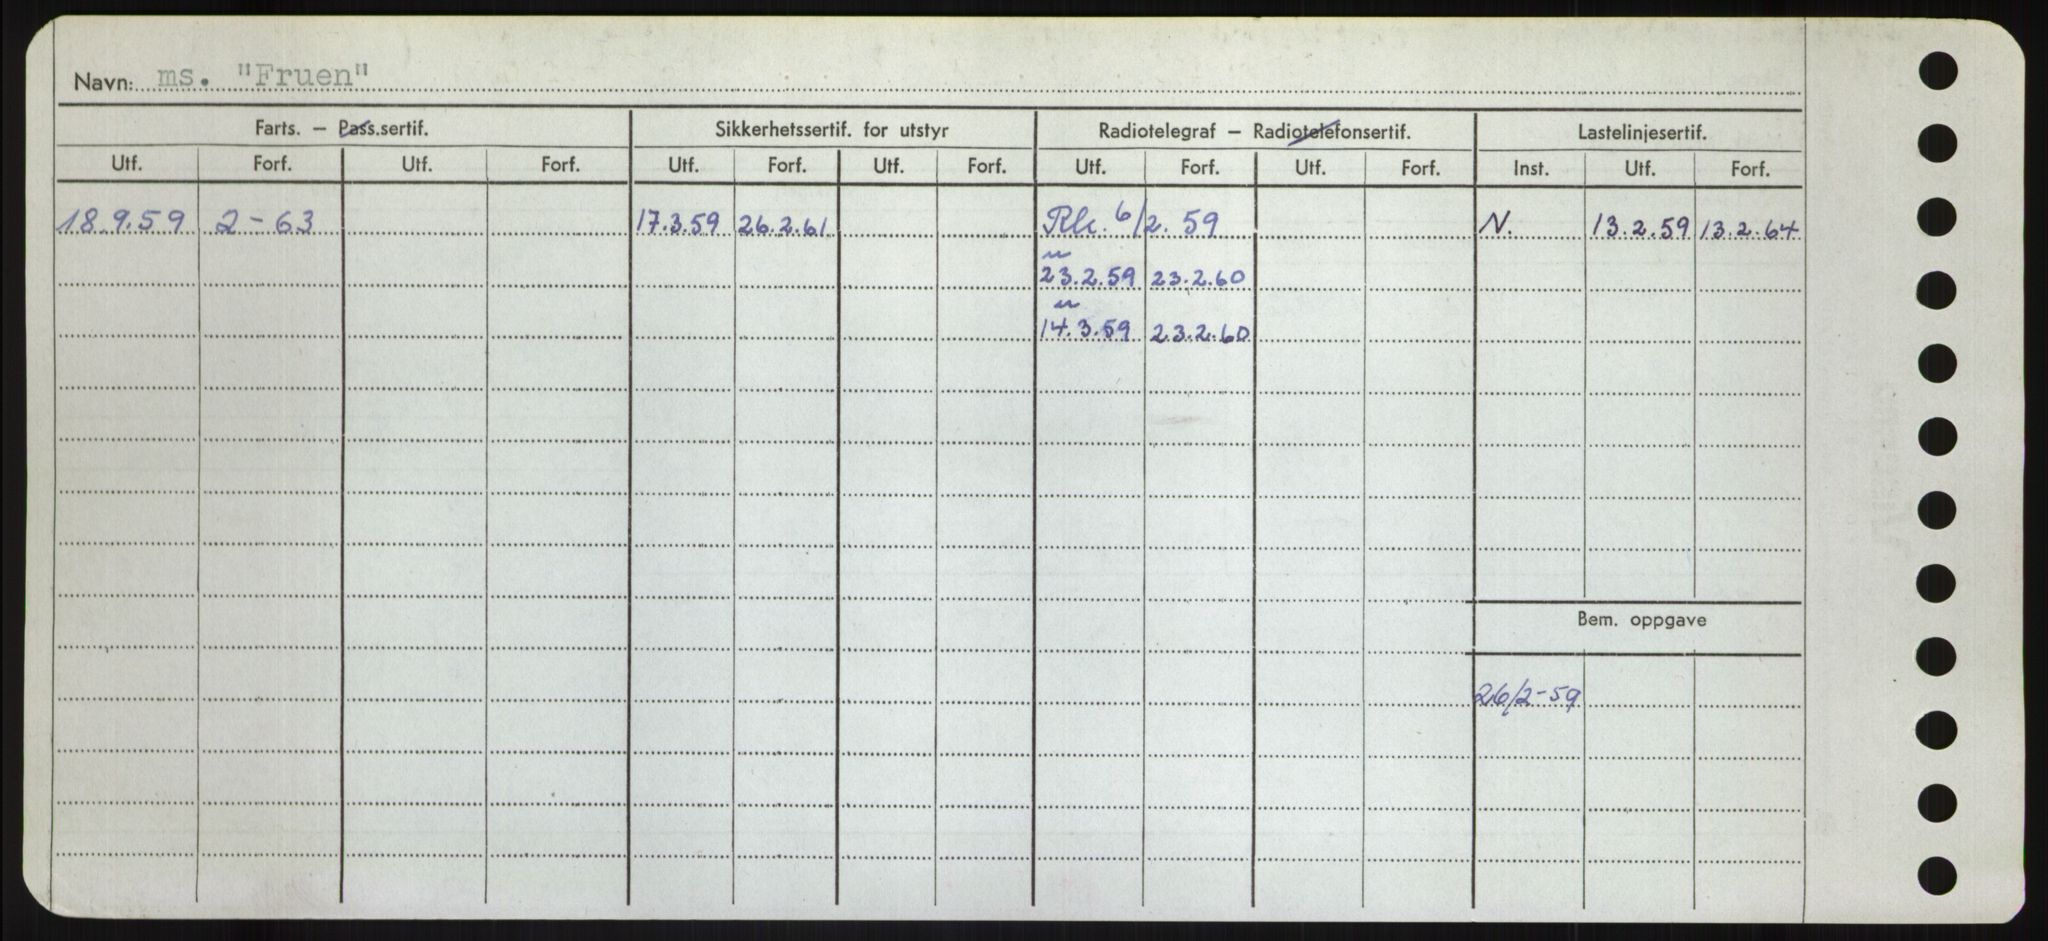 Navn: ms. "Fruen"
Farts. – Pass.sertif. Sikkerhetssertif. for utstyr Radiotelegraf – Radiotelefonsertif. Lastelinjesertif.
Utf. Forf. Utf. Forf. Utf. Forf. Utf. Forf. Utf. Forf. Utf. Forf. Inst. Utf. Forf.
18.9.59 2-63 17.3.59 26.2.61 6/2.59 N. 13.2.59 13.2.64
23.2.59 23.2.60
14.3.59 23.2.60
Bem. oppgave
26/2-59